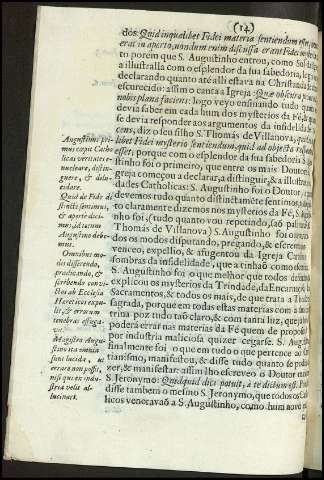 (14)
dos. Quid in quelibet Fidei materia sentiendum esset,
erat in aperto, nondum enim discussa erant Fidei
to porèm que S. Augustinho entrou, como Sol
a illustralla com o esplendor da sua sabedoria, lego
declarando quanto atè alli estava na Christanda
escurecido: assim o canta a Igreja: Quæ obscura
nobis plana faciens: logo veyo ensinando tudo quan
devia saber em cada hum dos mysterios da Fè,
se devia responder aos argumentos da infidelida
cens, diz o seu filho S. Thomàs de Villanova,
libet Fidei mysterio sentiendum, quid ad objecta
esset, porque com o esplendor da sua sabedoria S.
tinho foi o primeiro, que entre os mais Doutor
greja começou a declarar, a distinguir, & a illustra
dades Catholicas: S. Augustinho foi o Doutor
devemos tudo quanto distinctamète sentimos,
to claramente dizemos nos mysterios da Fè, S.
nho foi, (tudo quanto vou repetindo, saõ pala
Thomàs de Villanova) S. Augustinho foi o que
dos os modos disputando, prégando, & escreven
venceo, expellio, & afugentou da Igreja Catho
sombras da infidelidade, que a tinhaõ como
S. Augustinho foi o que melhor que todos
explicou os mysterios da Trindade, da Encarna
Sacramentos, & todos os mais, de que trata a Theo
sagrada, porque em todas estas materias com a
trina poz tudo taõ claro, & com tanta luz, que
poderà errar nas materias da Fè quem de propo
por industria maliciosa quizer cegarse. S. Augu
finalmente foi o que em tudo o que pertence ao
tianismo, manifestou, & disse tudo quanto se pode
zer, & manifestar: assim lho escreveo o Doutor
S. Jeronymo: Quidquid dici potuit, a te dictum est.
disse tambem o mesmo S. Jeronymo, que todos os Ca
tholicos veneravaõ a S. Augustinho, como hum novo
Augustinus pri-
mus cæpit Catho
licas veritates e-
nucleare, distin-
guere, & dilu-
cidare.
Quid de Fide di
stinctè sentimus,
& apertè dici-
mus, id totum
Augustino debe-
mus.
Omnibus mo-
dis disserendo,
prædicando, &
scribendo convi-
ctos ab Ecclesia
Hæreticos expu-
lit, & errorum
tenebras effuga-
vit.
Magistro Augu-
stino ita omnia
sunt lucida, ut
errare non possit,
nisi qui ex indu-
stria velit al-
lucinari.